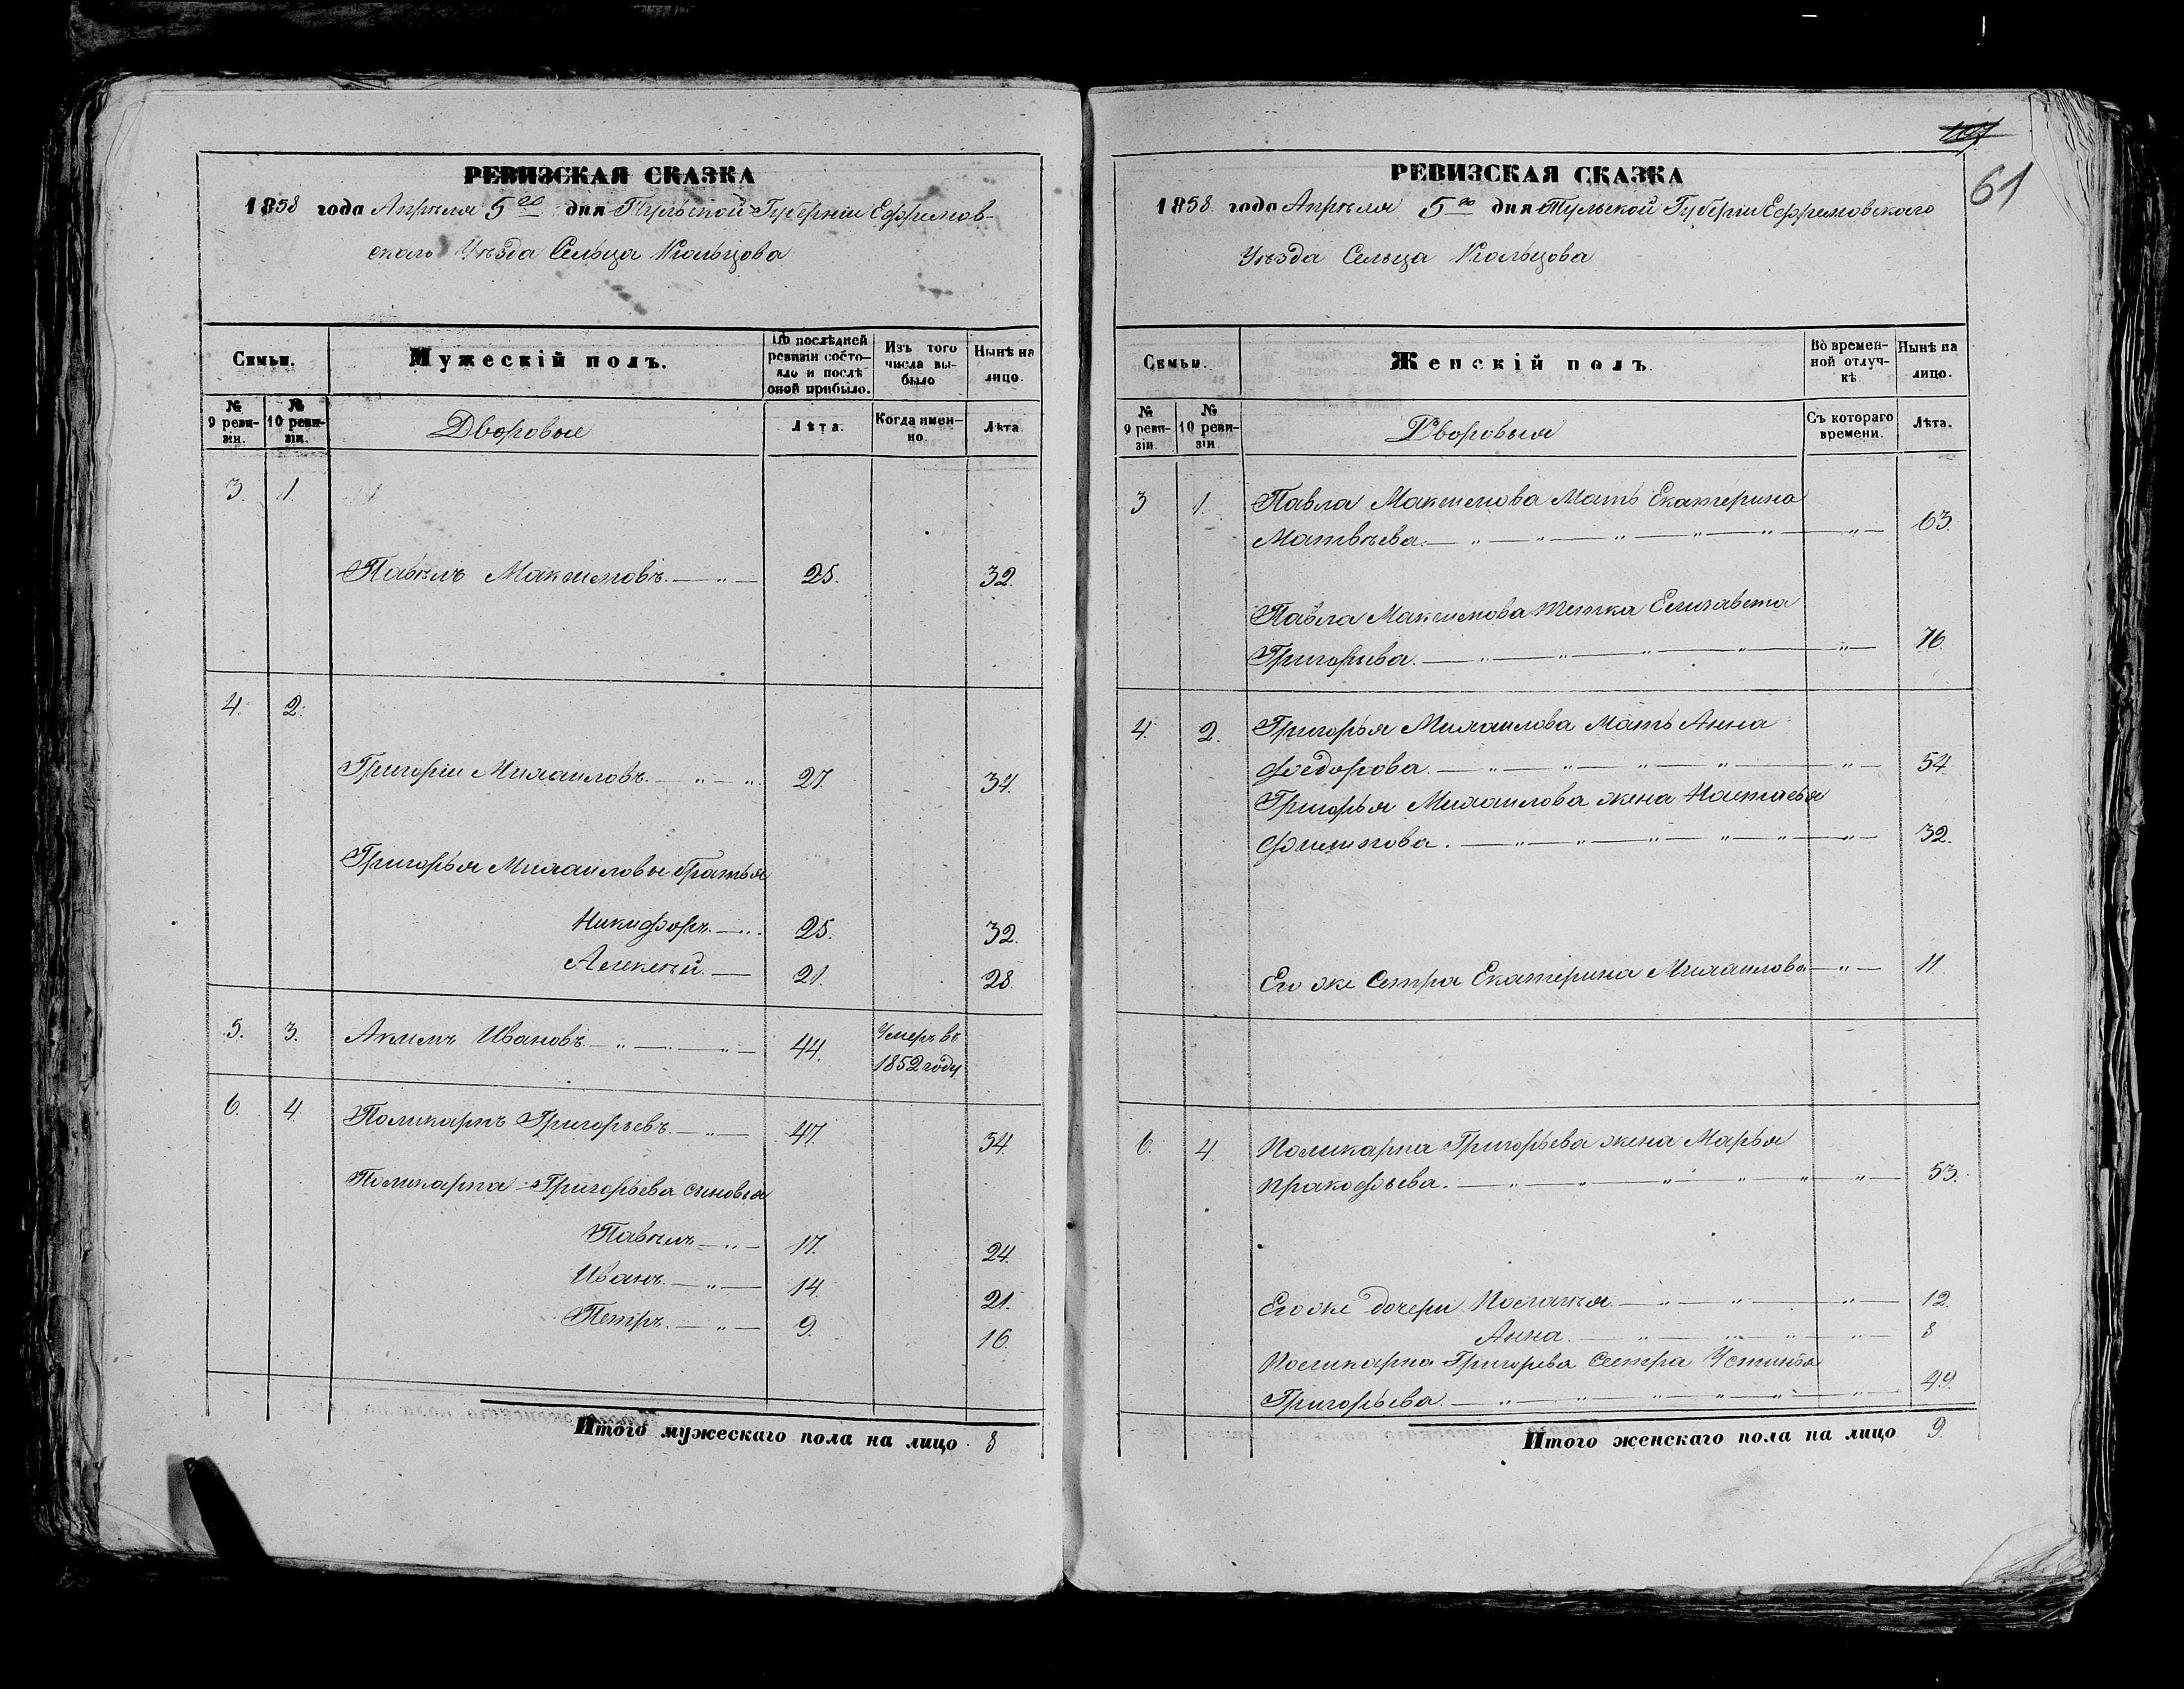 РЕВИЗСКАЯ СКАЗКА
1858 года Апрѣля 5го дня Тульской Губерніи Ефремов-
скаго Уѣзда Сельца Кольцова
Семьи.
Мужескій полъ.
По послѣдней ревизіи состояло и послѣ оной прибыло.
Изъ того числа выбыло
Нынѣ на лицо.
№ 9 ревизіи.
№ 10 ревизіи.
Дворовые
Лѣта.
Когда именно.
Лѣта
3. 1.
Павелъ Максимовъ. 25. 32.
4. 2.
Григорій Михаиловъ. 27. 34.
Григорья Михаиловы братья
Никифоръ. 25. 32.
Алексѣй. 21. 28.
5. 3. Акимъ Ивановъ 44. Умеръ въ
1852 году
6. 4. Поликарпъ Григорьевъ. 47. 54.
Поликарпа Григорьева сыновья
Павелъ 17. 24.
Иванъ. 14. 21.
Петръ. 9. 16.
Итого мужескаго пола на лицо 8
61
РЕВИЗСКАЯ СКАЗКА
1858 года Апрѣля 5го дня Тульской Губерніи Ефремовскаго
Уѣзда Сельца Кольцова
Семьи.
Женскій полъ.
Во временной отлучкѣ
Нынѣ на лицо.
№ 9 ревизіи.
№ 10 ревизіи
Дворовыя
Съ котораго времени.
Лѣта.
3 1. Павла Максимова Мать Екатерина
Матвѣева. 63.
Павла Максимова тетка Елизавета
Григорьева. 76.
4. 2. Григорья Михаилова Мать Анна
Федорова. 54
Григорья Михаилова жена Настасья
Филипова. 32.
Его же Сестра Екатерина Михаилова 11
6. 4. Поликарпа Григорьева жена Марья
Пракофьева. 53.
Его же дочери Пелагея. 12.
Анна. 8
Поликарпа Григорьева Сестра Устинья
Григорьева. 49.
Итого женскаго пола на лицо 9.